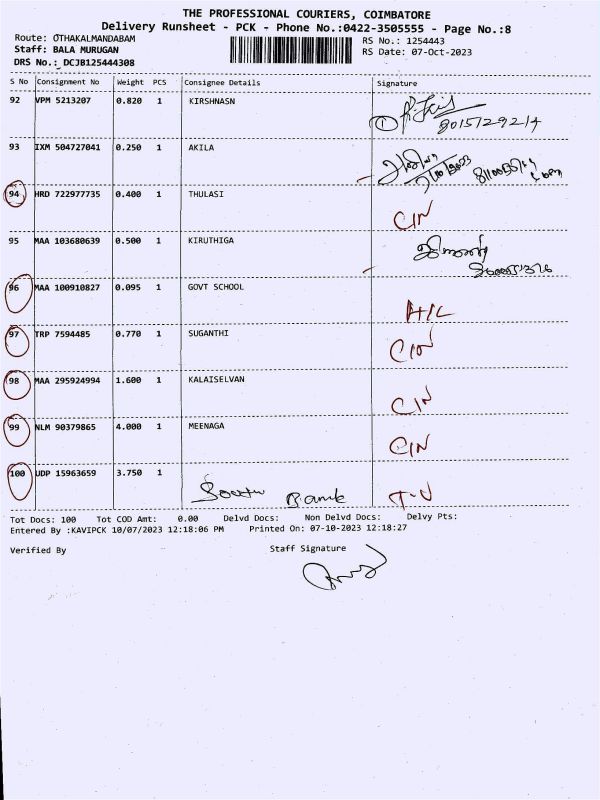 THE PROFESSIONAL COURIERS, COIMBATORE
Delivery Runsheet - PCK - Phone No.:0422-3505555 - Page No.:8
Route: OTHAKALMANDABAM
RS No.: 1254443
Staff: BALA MURUGAN
RS Date: 07-Oct-2023
DRS No.: DCJB125444308
S No Consignment No Weight PCS Consignee Details Signature
92 VPM 5213207 0.820 1 KIRSHNASN
① 8015729214
93 IXM 504727041 0.250 1 AKILA
94 HRD 722977735 0.400 1 THULASI
CIN
95 MAA 103680639 0.500 1 KIRUTHIGA
96 MAA 100910827 0.095 1 GOVT SCHOOL
H/L
97 TRP 7594485 0.770 1 SUGANTHI
CIN
98 MAA 295924994 1.600 1 KALAISELVAN
CIN
99 NLM 90379865 4.000 1 MEENAGA
CIN
100 UDP 15963659 3.750 1
South Bank
Tot Docs: 100 Tot COD Amt: 0.00 Delvd Docs: Non Delvd Docs: Delvy Pts:
Entered By :KAVIPCK 10/07/2023 12:18:06 PM Printed On: 07-10-2023 12:18:27
Verified By Staff Signature